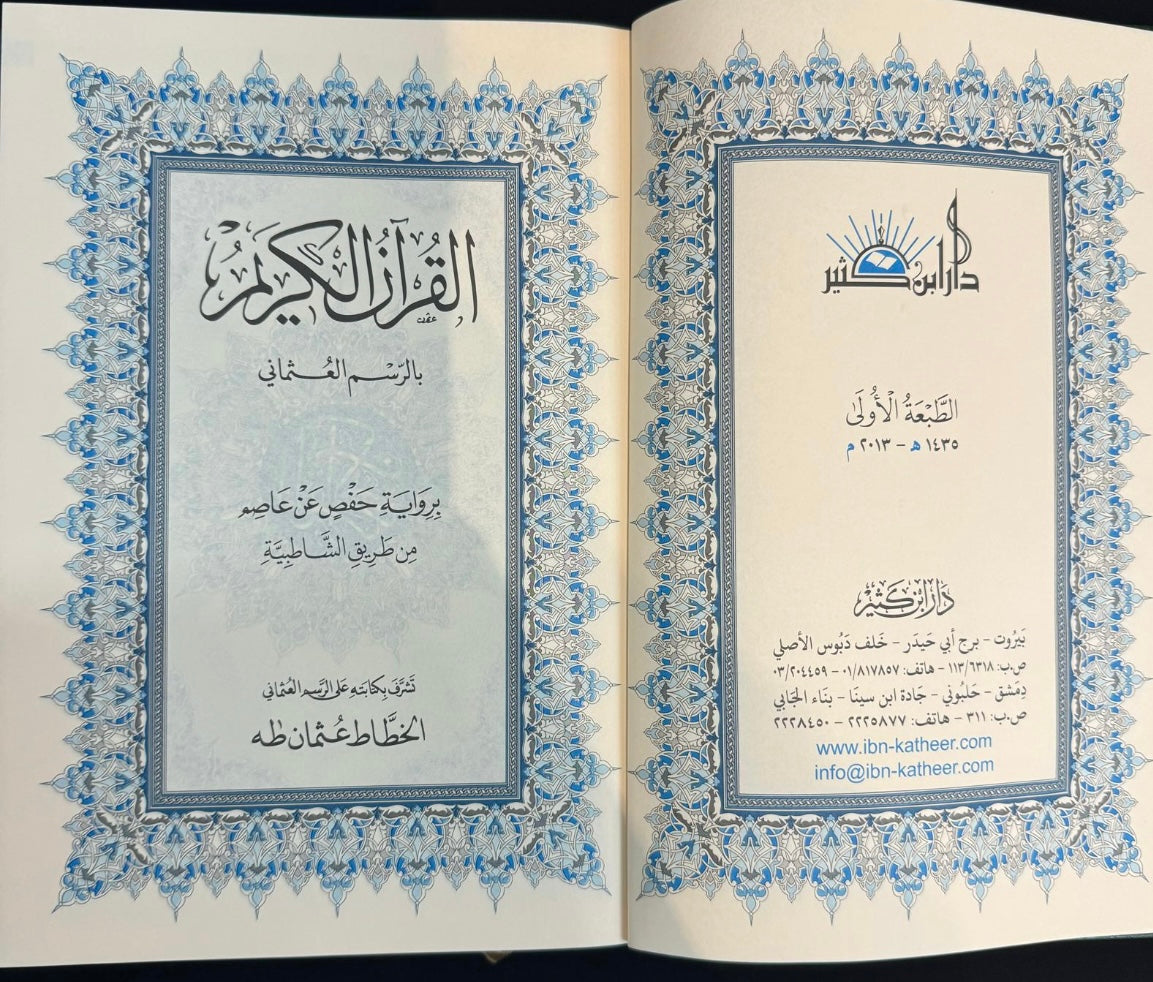 دار ابن كثير
الطَّبْعَةُ الْأُولَى
١٤٣٥ هـ - ٢٠١٣ م
دَار ابْن كَثِيْر
بَيْرُوت - برج أبي حَيدَر - خَلف دَبُوس الأصلي
ص.ب: ١١٣/٦٣١٨ - هاتف: ٠١/٨١٧٨٥٧ - ٠٣/٢٠٤٤٥٩
دِمَشق - حَلبُوني - جَادة ابن سينَا - بنَاء الجَابي
ص.ب: ٣١١ - هاتف: ٢٢٢٥٨٧٧ - ٢٢٢٨٤٥٠
www.ibn-katheer.com
info@ibn-katheer.com
القُرآنُ الكَرِيمُ
بالرّسْم العُثماني
بِرِوَايَةِ حَفْصٍ عَنْ عَاصِم
مِن طَرِيقِ الشَّاطِبِيَّةِ
تَشَرَّفَ بِكِتابَتِهِ عَلى الرَّسمِ العُثماني
الخَطَّاط عُثمان طٰه